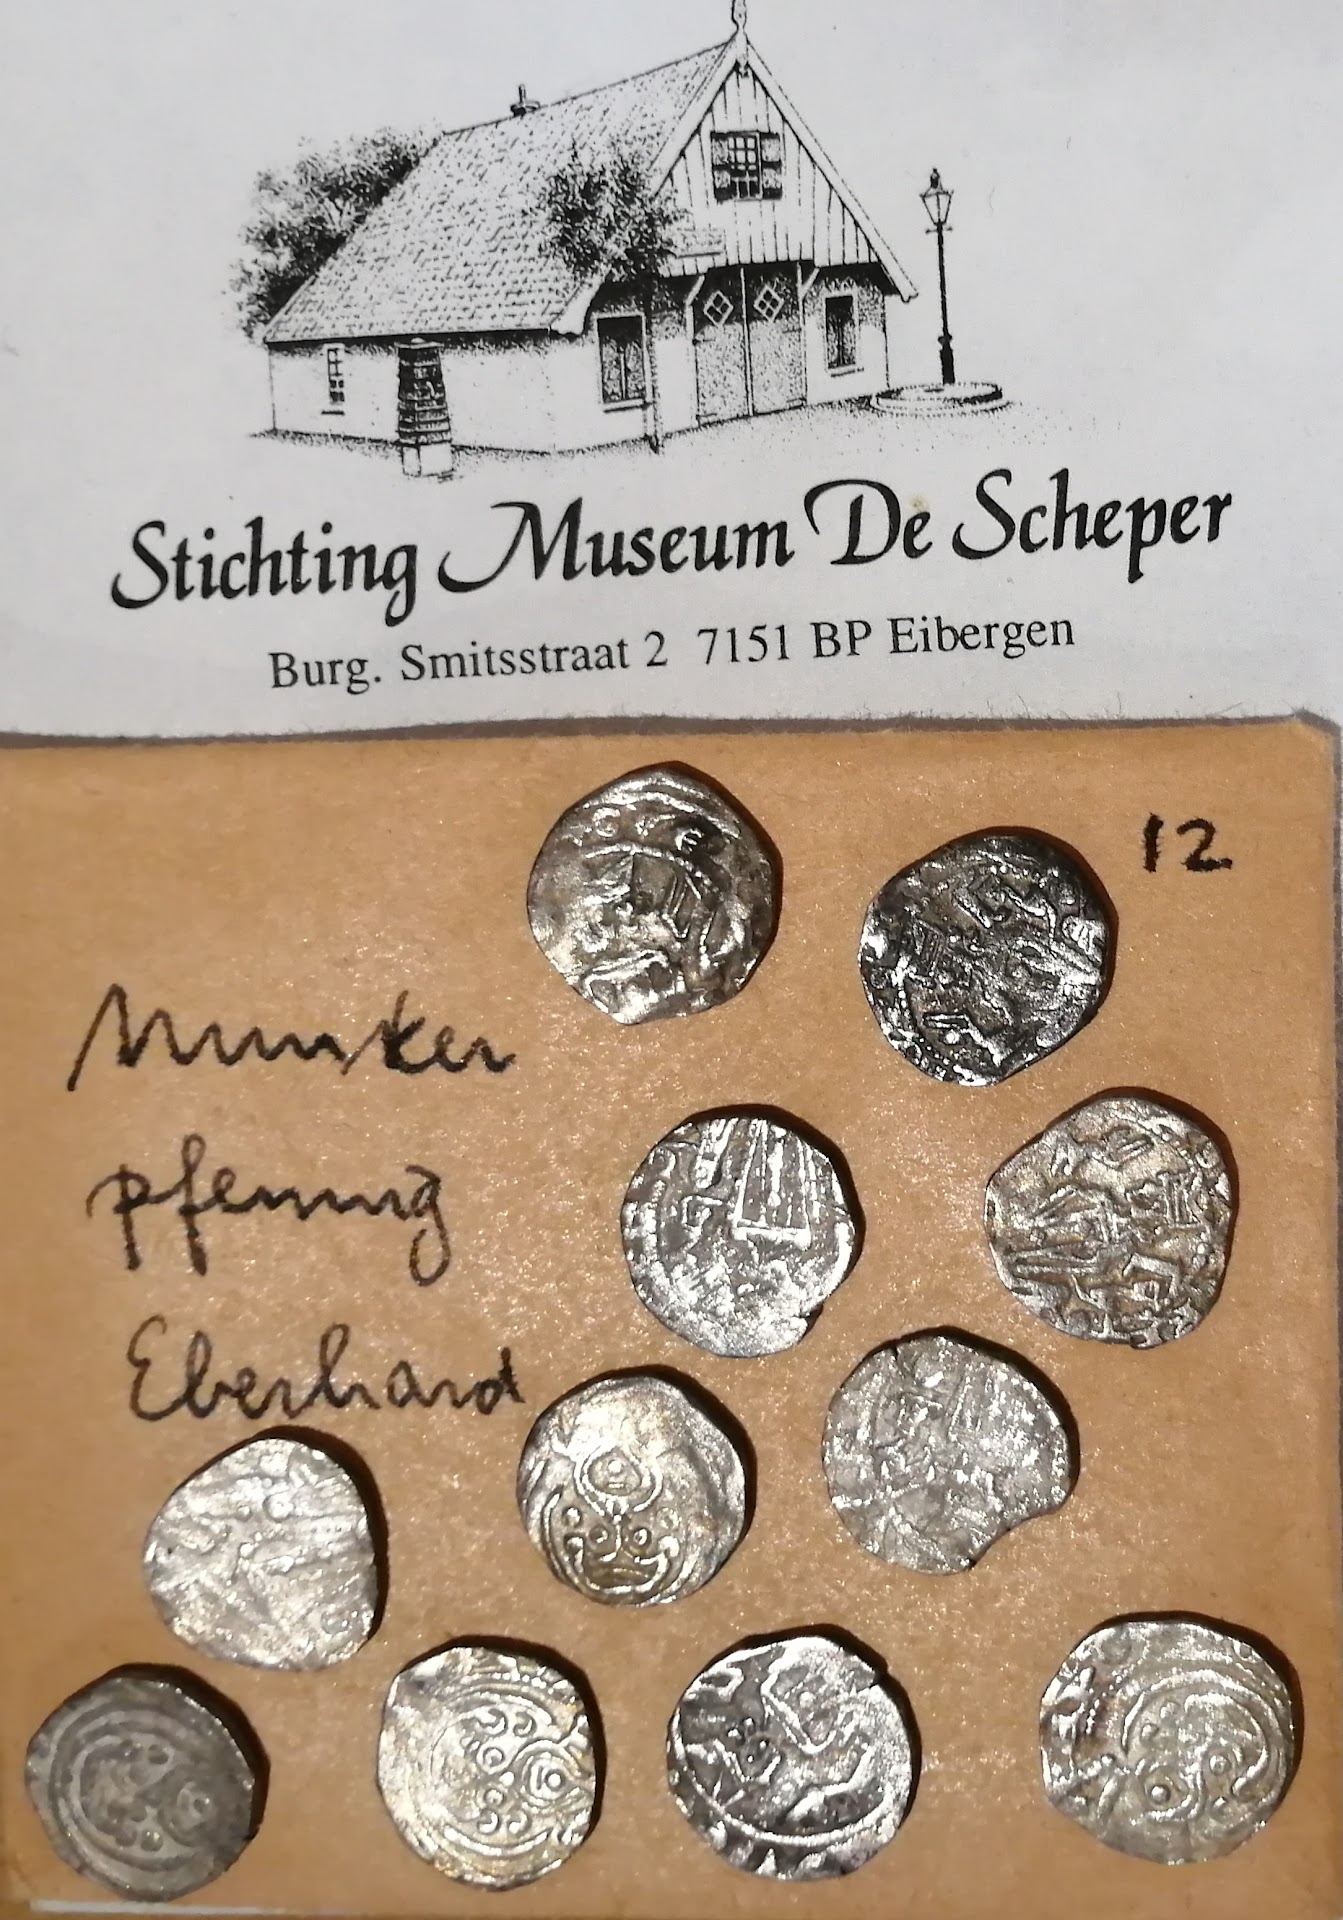 Stichting Museum De Scheper
Burg. Smitsstraat 2 7151 BP Eibergen
12
Munster
pfennig
Eberhard